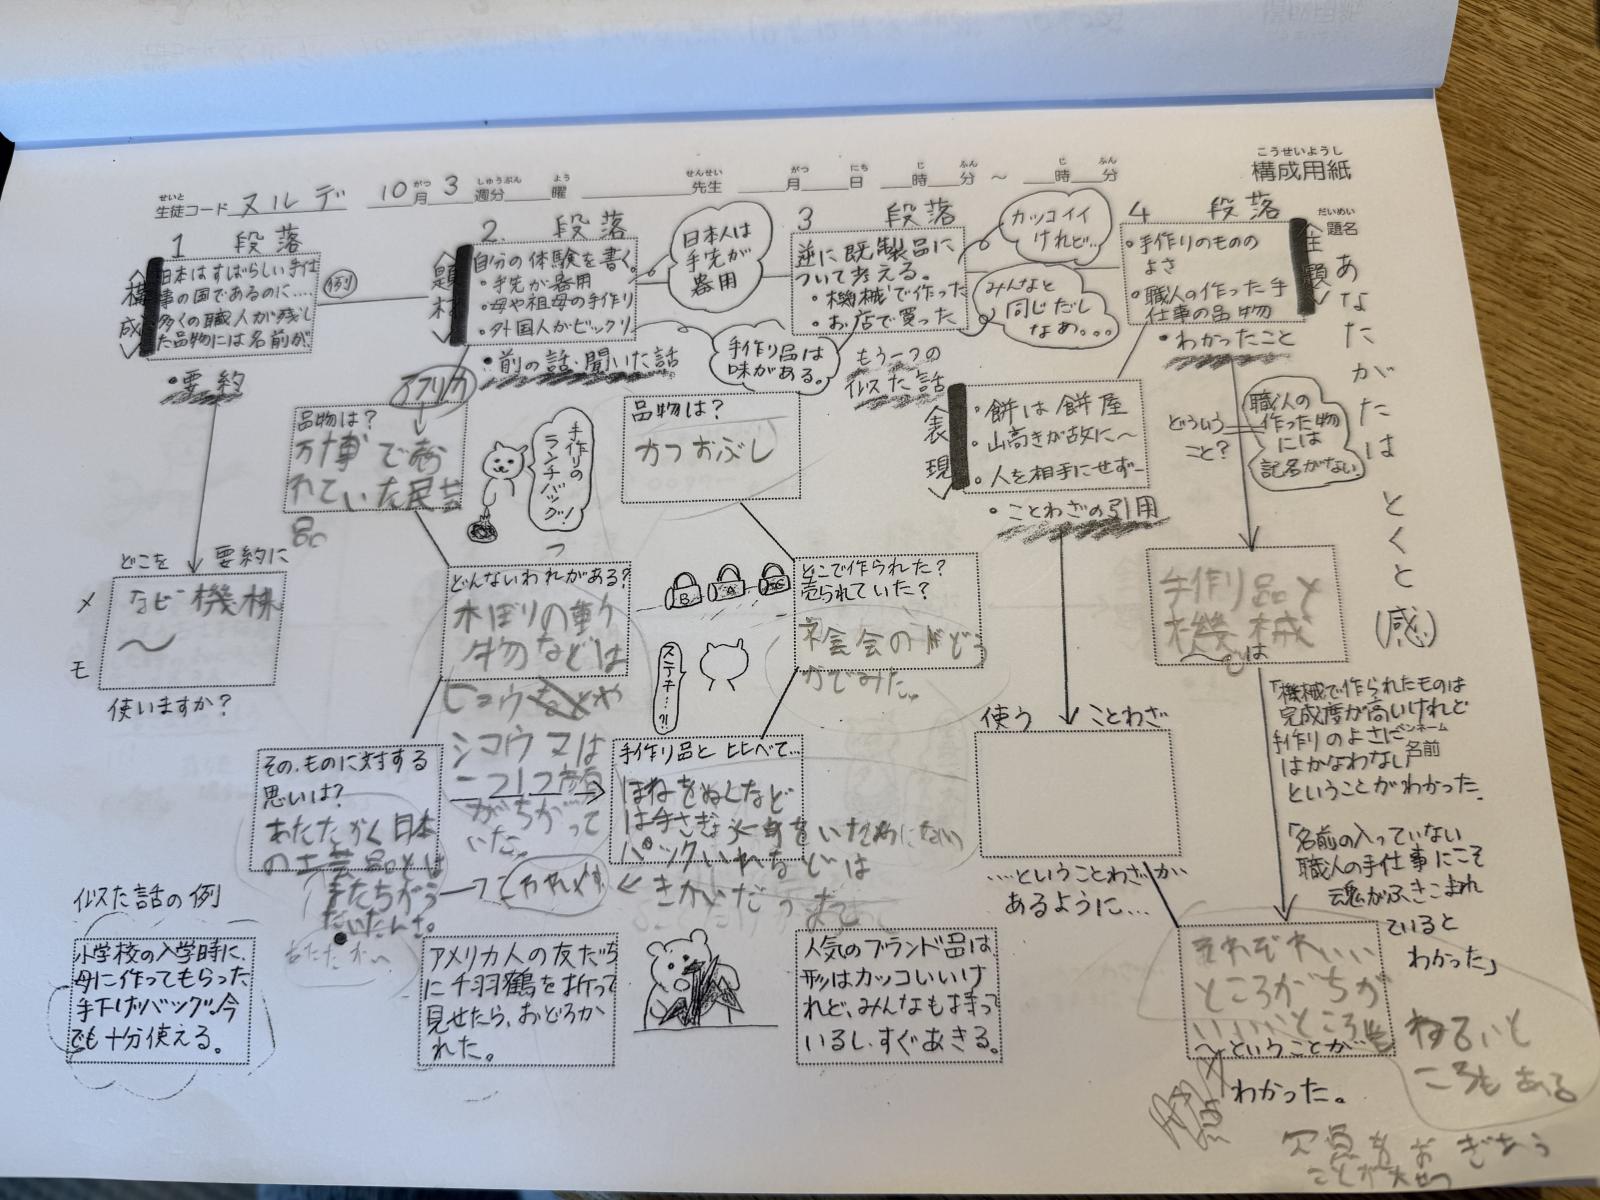 こうせいようし
構成用紙
せいと
生徒コード ヌルデ 10月 3週分 曜 先生 月 日 時 分 ～ 時 分
がつ しゅうぶん よう せんせい がつ にち じ ふん じ ふん
だいめい
題名
あなたがたは とくと (感)
1 段落
構成
日本はすばらしい手仕
事の国であるのに……
多くの職人が残し
た品物には名前が
例
・要約
どこを 要約に
メモ
なぜ機械
～
使いますか？
2. 段落
題材
自分の体験を書く。
・手先が器用
・母や祖母の手作り
・外国人がビックリ
・前の話・聞いた話
日本人は
手先が
器用
手作り品は
味がある。
アフリカ
品物は？
手作りの
ランチバッグ！
どんないわれがある？
木ぼりの動
物などは
シマウマは
がちがって
いた。
その、ものに対する
思いは？
あたたかく日本
の工芸品とは
3 段落
逆に既製品に
ついて考える。
・機械で作った
・お店で買った
カッコイイ
けれど…
みんなと
同じだし
なぁ。。。
もう一つの
似た話
品物は？
かつおぶし
B A
ステキ…？！
どこで作られた？
売られていた？
手作り品と比べて…
ほねをぬくなど
きかいだっ
4 段落
主題
・手作りのものの
よさ
・職人の作った手
仕事の品物
・わかったこと
表現
・餅は餅屋
・山高きが故に～
・人を相手にせず―
・ことわざの引用
どういう
こと？
職人の
作った物
には
記名がない
使う ことわざ
……ということわざが
あるように…
手作り品と
機械
～は
「機械で作られたものは
完成度が高いけれど
手作りのよさに
はかなわない」
ペンネーム
名前
ということがわかった。
「名前の入っていない
職人の手仕事にこそ
魂がふきこまれ
ていると
わかった」
それぞれいい
ところがちが
～ということが
わかった。
わるいと
ころもある
似た話の例
小学校の入学時に、
母に作ってもらった
手下げバッグ。今
でも十分使える。
アメリカ人の友だち
に千羽鶴を折って
見せたら、おどろか
れた。
人気のブランド品は、
形はカッコいいけ
れど、みんなも持って
いるし、すぐあきる。